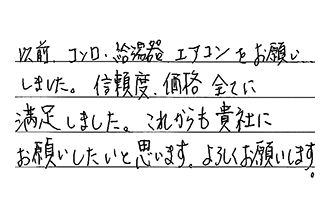 以前、コンロ・給湯器 エアコンをお願い
しました。信頼度、価格 全てに
満足しました。これからも貴社に
お願いしたいと思います。よろしくお願いします。